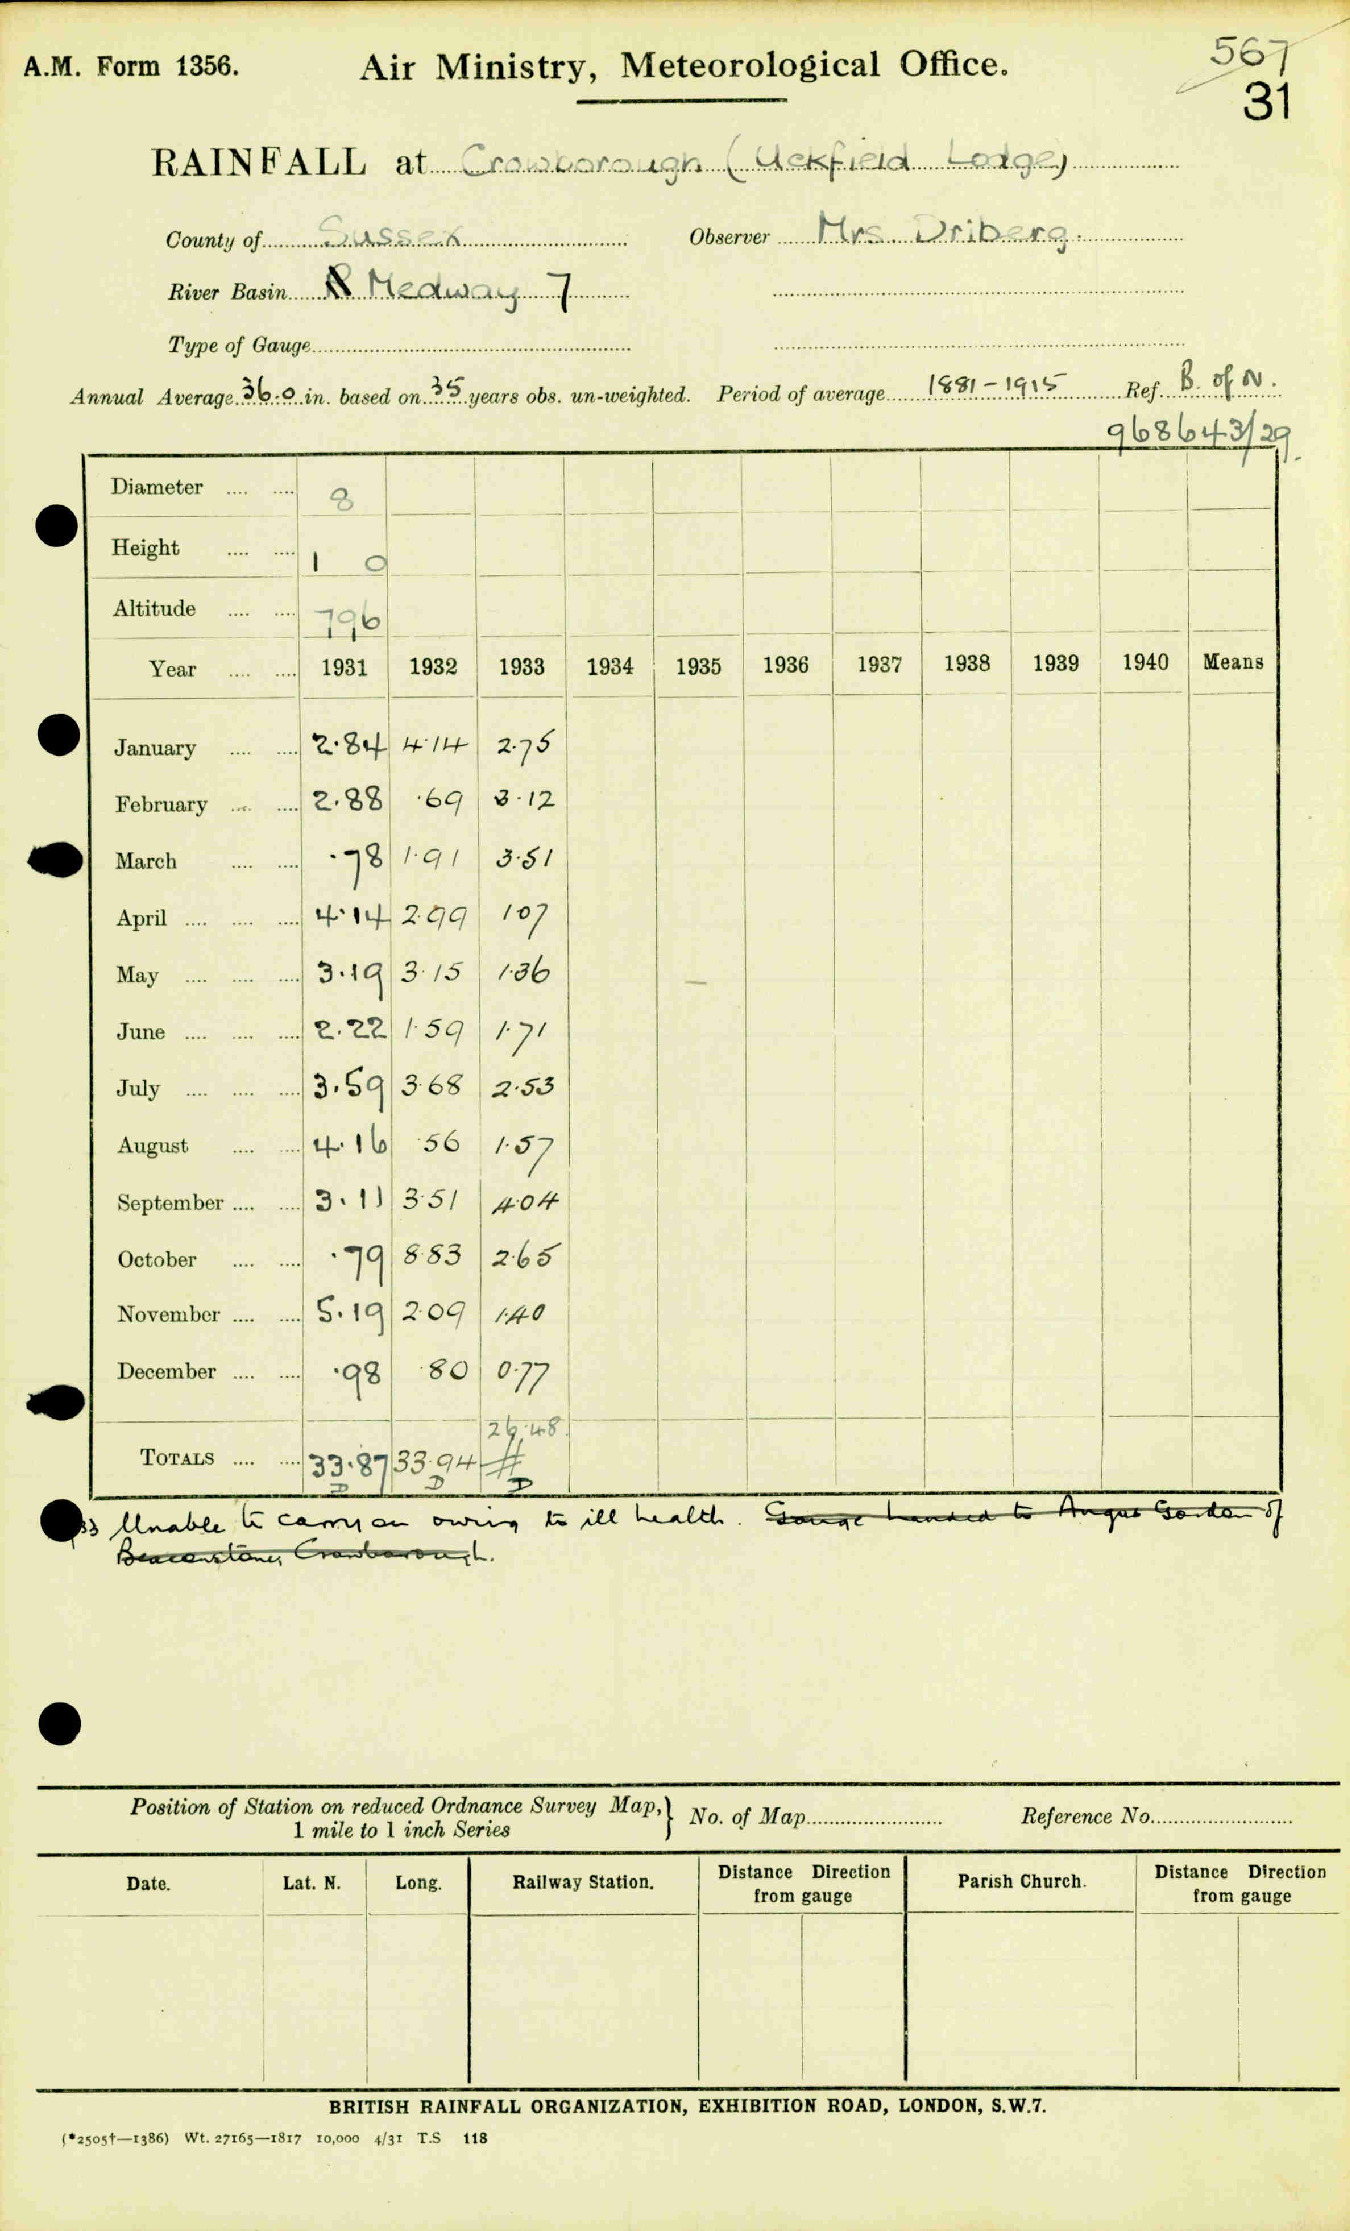 A.M. Form 1356. Air Ministry, Meteorological Office. 567
31
RAINFALL at Crowborough (Uckfield Lodge)
County of Sussex Observer Mrs. Driberg.
River Basin Medway 7
Type of Gauge
Annual Average 36.0 in. based on 35 years obs. un-weighted. Period of average 1881-1915 Ref. B. of N.
968643/29.
Diameter 8
Height 1 0
Altitude 796
Year 1931 1932 1933 1934 1935 1936 1937 1938 1939 1940 Means
January 2.84 4.14 2.75
February 2.88 .69 3.12
March .78 1.91 3.51
April 4.14 2.99 1.07
May 3.19 3.15 1.36
June 2.22 1.59 1.71
July 3.59 3.68 2.53
August 4.16 .56 1.57
September 3.11 3.51 4.04
October .79 8.83 2.65
November 5.19 2.09 1.40
December .98 .80 0.77
26.48
TOTALS 33.87 33.94 #
D D D
33 Unable to carry on owing to ill health. Gauge handed to Angus Gordon of
Beaconstone, Crowborough.
Position of Station on reduced Ordnance Survey Map, } No. of Map Reference No.
1 mile to 1 inch Series
Date. Lat. N. Long. Railway Station. Distance Direction from gauge Parish Church. Distance Direction from gauge
BRITISH RAINFALL ORGANIZATION, EXHIBITION ROAD, LONDON, S.W.7.
(*2505†—1386) Wt. 27165—1817 10,000 4/31 T.S 118